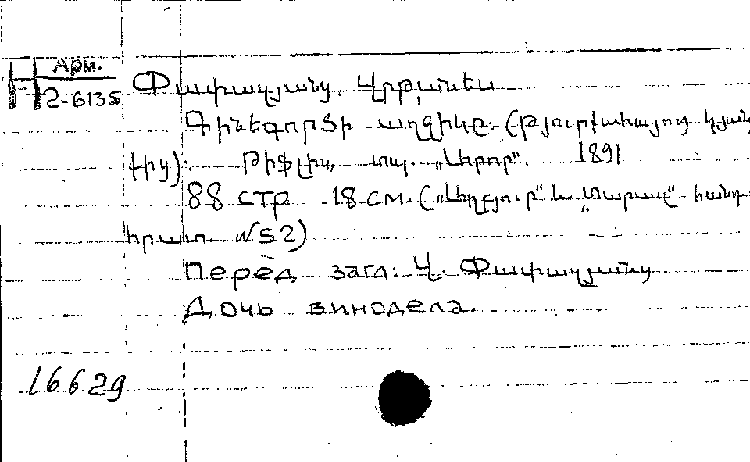 Арм.
2-6135
Փափազյանց, Վրթանես
Գինեգործի աղջիկը. (Թյուրքահայոց կյան
քից):   Թիֆլիս, տպ. „Արոր“.   1891
88 стр   18 см. („Աղբյուր“ և „Տարազ“ - հանդ
իրատ. №52)
Перед загл: Վ. Փափազյանց
Дочь винодела.
16629